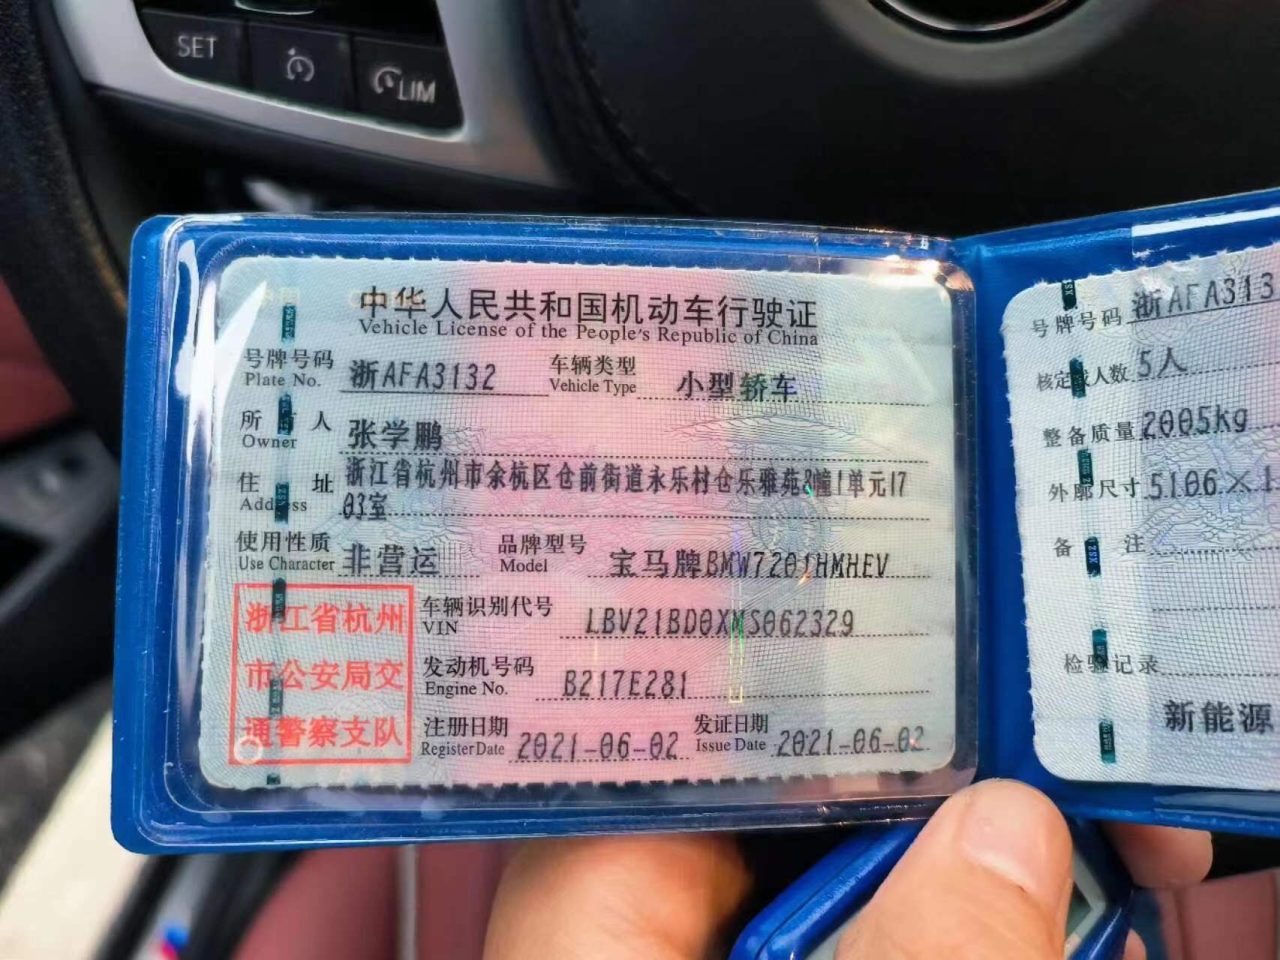 SET
LIM
中华人民共和国机动车行驶证
Vehicle License of the People's Republic of China
号牌号码 浙AFA3132 车辆类型 小型轿车
Plate No. Vehicle Type
所有人 张学鹏
Owner
住址 浙江省杭州市余杭区仓前街道永乐村仓乐雅苑8幢1单元17
Address 03室
使用性质 非营运 品牌型号 宝马牌BMW7201HMHEV
Use Character Model
浙江省杭州
市公安局交
通警察支队
车辆识别代号 LBV21BD0XMS062329
VIN
发动机号码 B217E281
Engine No.
注册日期 2021-06-02 发证日期 2021-06-02
Register Date Issue Date
号牌号码 浙AFA313
核定载人数 5人
整备质量 2005kg
外廓尺寸 5106×1
备注
检验记录
新能源